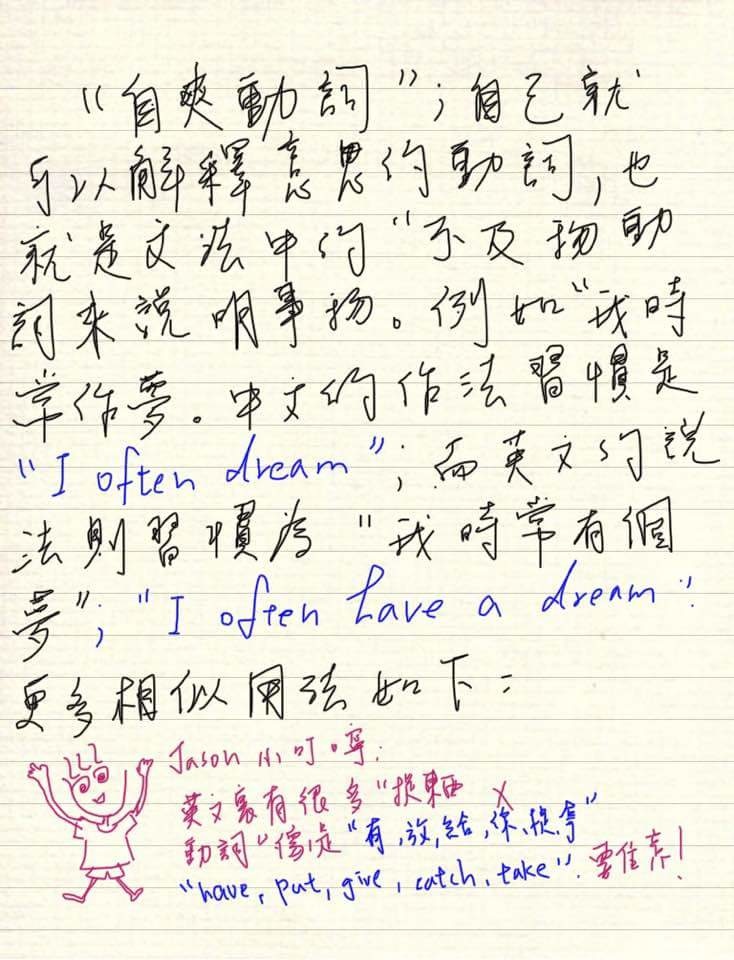 "自爽動詞"；自己就
可以解釋意思的動詞，也
就是文法中的"不及物動
詞來說明事物。例如"我時
常作夢。中文的作法習慣是
"I often dream"；而英文的說
法則習慣為"我時常有個
夢"；"I often have a dream".
更多相似用法如下：
Jason 小叮嚀：
英文裏有很多"捉東西
動詞"像是"有，放，給，捉，拿"
"have, put, give, catch, take". 要注意！